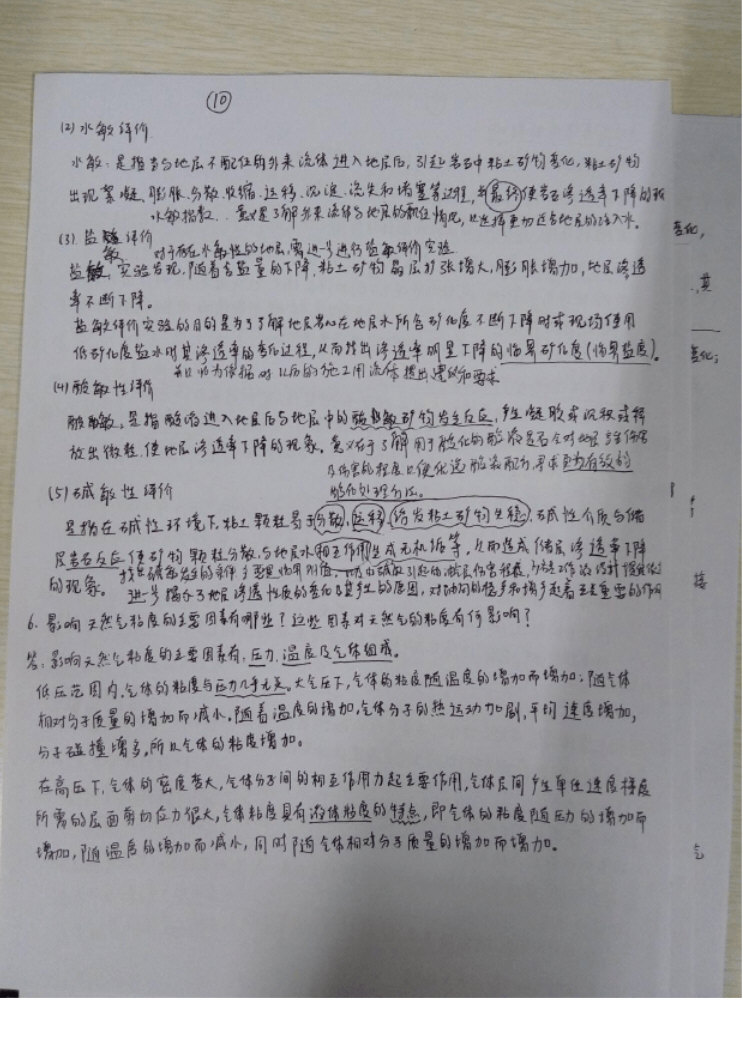 ⑩
(2) 水敏评价
水敏：是指当与地层不配伍的外来流体进入地层后，引起岩石中粘土矿物变化，粘土矿物
出现絮凝、膨胀、分散、收缩、运移、沉淀、流失和堵塞等过程，并最终使岩石渗透率下降的现
水敏指数. 意义是了解外来流体与地层的配伍情况，以选择更加适合地层的注入水。
(3) 盐敏评价
对于存在水敏性的地层，需进一步进行盐敏评价实验
盐敏，实验发现，随着含盐量的下降，粘土矿物晶层扩张增大，膨胀增加，地层渗透
率不断下降。
盐敏评价实验的目的是为了了解地层岩心在地层水所含矿化度不断下降时或现场使用
低矿化度盐水时其渗透率的变化过程，从而找出渗透率明显下降的临界矿化度（临界盐度）。
并以此为依据对以后的施工用流体提出建议和要求
(4) 酸敏性评价
酸敏，是指酸液进入地层后与地层中的酸敏矿物发生反应，产生凝胶或沉积或释
放出微粒，使地层渗透率下降的现象。意义在于了解用于酸化的酸液是否会对地层产生伤害
及伤害的程度以便优选酸液配方，寻求更为有效的
酸化处理方法。
(5) 碱敏性评价
是指在碱性环境下，粘土颗粒易于分散、运移、给发粘土矿物失稳，碱性介质与储
层岩石反应使矿物颗粒分散，与地层水相互作用生成无机垢等，从而造成储层渗透率下降
的现象。 找出碱敏发生的条件主要是临界PH值，
进一步揭示了地层渗透性质的变化及其产生的原因，对油田的稳产和增产起着至关重要的作用
6、影响天然气粘度的主要因素有哪些？这些因素对天然气的粘度有何影响？
答：影响天然气粘度的主要因素有：压力、温度及气体组成。
低压范围内，气体的粘度与压力几乎无关。大气压下，气体的粘度随温度的增加而增加；随气体
相对分子质量的增加而减小。随着温度的增加，气体分子的热运动加剧，平均速度增加，
分子碰撞增多，所以气体的粘度增加。
在高压下，气体的密度变大，气体分子间的相互作用力起主要作用，气体层间产生单位速度梯度
所需的层面剪切应力很大，气体粘度具有液体粘度的特点，即气体的粘度随压力的增加而
增加，随温度的增加而减小，同时随气体相对分子质量的增加而增加。
变化，
，其
变化；
接
气